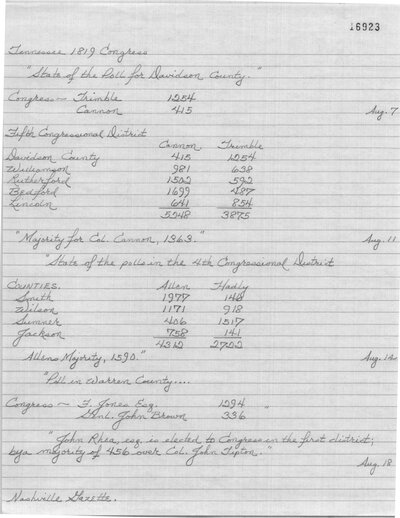 16923
Tennessee 1819 Congress
"State of the Poll for Davidson County."
Congress ~ Trimble 1254
Cannon 415 Aug. 7
Fifth Congressional District
Cannon Trimble
Davidson County 415 1254
Williamson 981 638
Rutherford 1502 592
Bedford 1699 487
Lincoln 641 854
5248 3875
"Majority for Col. Cannon, 1363." Aug. 11
"State of the polls in the 4th Congressional District
COUNTIES. Allen Hadly
Smith 1977 146
Wilson 1171 918
Sumner 406 1517
Jackson 758 141
4312 2722
Allens Majority, 1590." Aug. 14
"Poll in Warren County....
Congress ~ F. Jones Esq. 1294
Genl. John Brown 336 "
"John Rhea, esq. is elected to Congress in the first district;
by a majority of 456 over Col. John Tipton."
Aug. 18
Nashville Gazette.